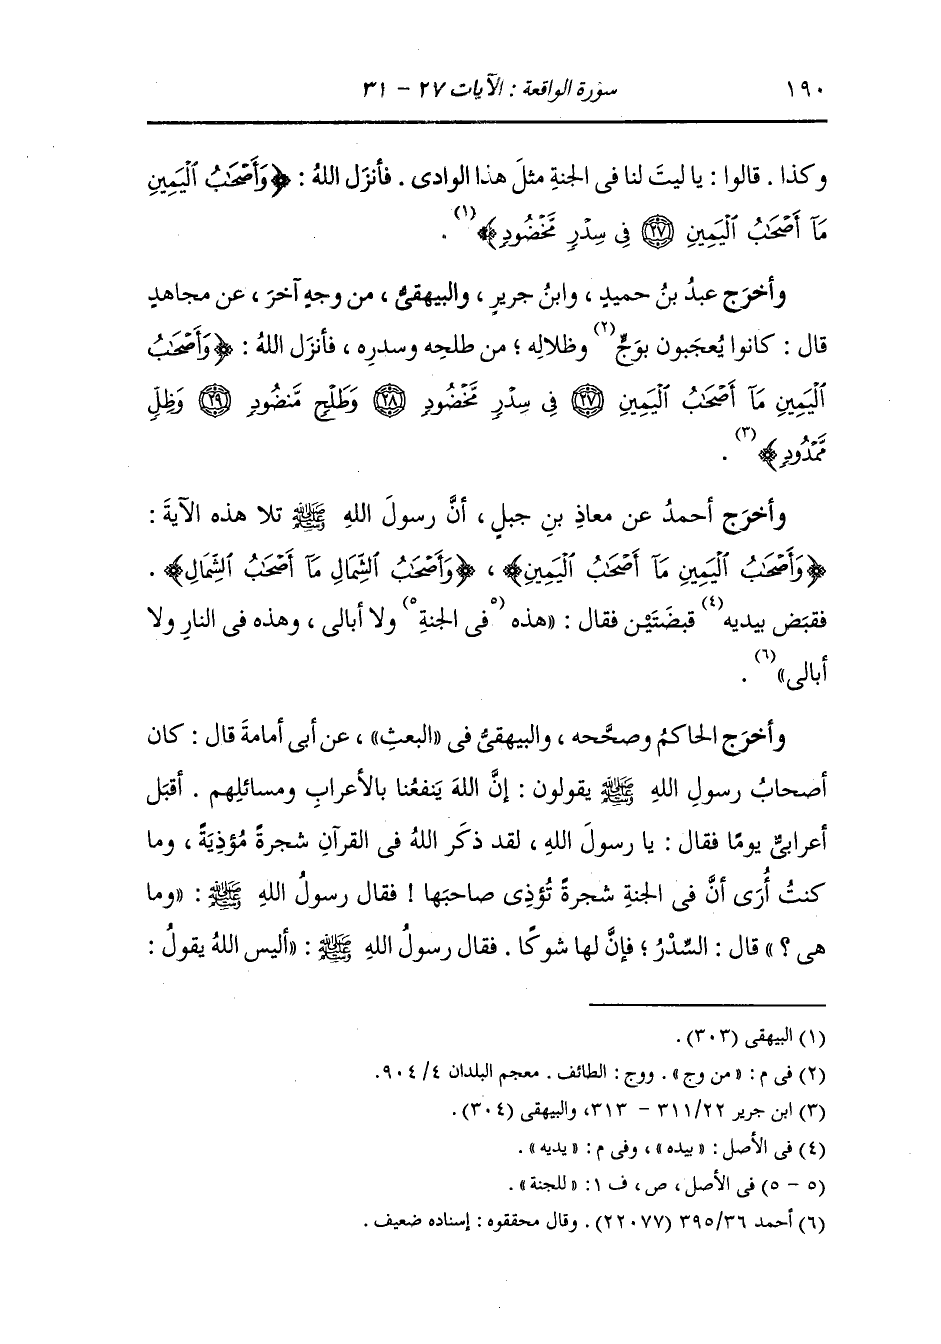 ١٩٠ سورة الواقعة : الآيات ٢٧ - ٣١
وكذا . قالوا : يا ليتَ لنا فى الجنةِ مثلَ هذا الوادى . فأنزَل اللهُ : ﴿وَأَصْحَٰبُ ٱلْيَمِينِ
مَآ أَصْحَٰبُ ٱلْيَمِينِ ٢٧ فِى سِدْرٍ مَّخْضُودٍ﴾(١) .
وأخرَج عبدُ بنُ حميدٍ ، وابنُ جريرٍ ، والبيهقىُّ ، من وجهٍ آخرَ ، عن مجاهدٍ
قال : كانوا يُعجَبون بوَجٍّ(٢) وظلالِه ؛ من طلحِه وسدرِه ، فأنزَل اللهُ : ﴿وَأَصْحَٰبُ
ٱلْيَمِينِ مَآ أَصْحَٰبُ ٱلْيَمِينِ ٢٧ فِى سِدْرٍ مَّخْضُودٍ ٢٨ وَطَلْحٍ مَّنضُودٍ ٢٩ وَظِلٍّ
مَّمْدُودٍ﴾(٣) .
وأخرَج أحمدُ عن معاذِ بنِ جبلٍ ، أنَّ رسولَ اللهِ ﷺ تلا هذه الآيةَ :
﴿وَأَصْحَٰبُ ٱلْيَمِينِ مَآ أَصْحَٰبُ ٱلْيَمِينِ﴾ ، ﴿وَأَصْحَٰبُ ٱلشِّمَالِ مَآ أَصْحَٰبُ ٱلشِّمَالِ﴾ .
فقبَض بيديه(٤) قبضَتَيْن فقال : «هذه (٥فى الجنةِ٥) ولا أبالى ، وهذه فى النارِ ولا
أبالى»(٦) .
وأخرَج الحاكمُ وصحَّحه ، والبيهقىُّ فى «البعثِ» ، عن أبى أمامةَ قال : كان
أصحابُ رسولِ اللهِ ﷺ يقولون : إنَّ اللهَ يَنفعُنا بالأعرابِ ومسائلِهم . أقبَل
أعرابىٌّ يومًا فقال : يا رسولَ اللهِ ، لقد ذكَر اللهُ فى القرآنِ شجرةً مُؤذِيَةً ، وما
كنتُ أُرَى أنَّ فى الجنةِ شجرةً تُؤذِى صاحبَها ! فقال رسولُ اللهِ ﷺ : «وما
هى ؟» قال : السِّدْرُ ؛ فإنَّ لها شوكًا . فقال رسولُ اللهِ ﷺ : «أليس اللهُ يقولُ :
(١) البيهقى (٣٠٣) .
(٢) فى م : «من وج» . ووج : الطائف . معجم البلدان ٤/ ٩٠٤.
(٣) ابن جرير ٢٢/ ٣١١ - ٣١٣، والبيهقى (٣٠٤) .
(٤) فى الأصل : «بيده» ، وفى م : «يديه» .
(٥ - ٥) فى الأصل ، ص ، ف ١: «للجنة» .
(٦) أحمد ٣٦/ ٣٩٥ (٢٢٠٧٧) . وقال محققوه : إسناده ضعيف .